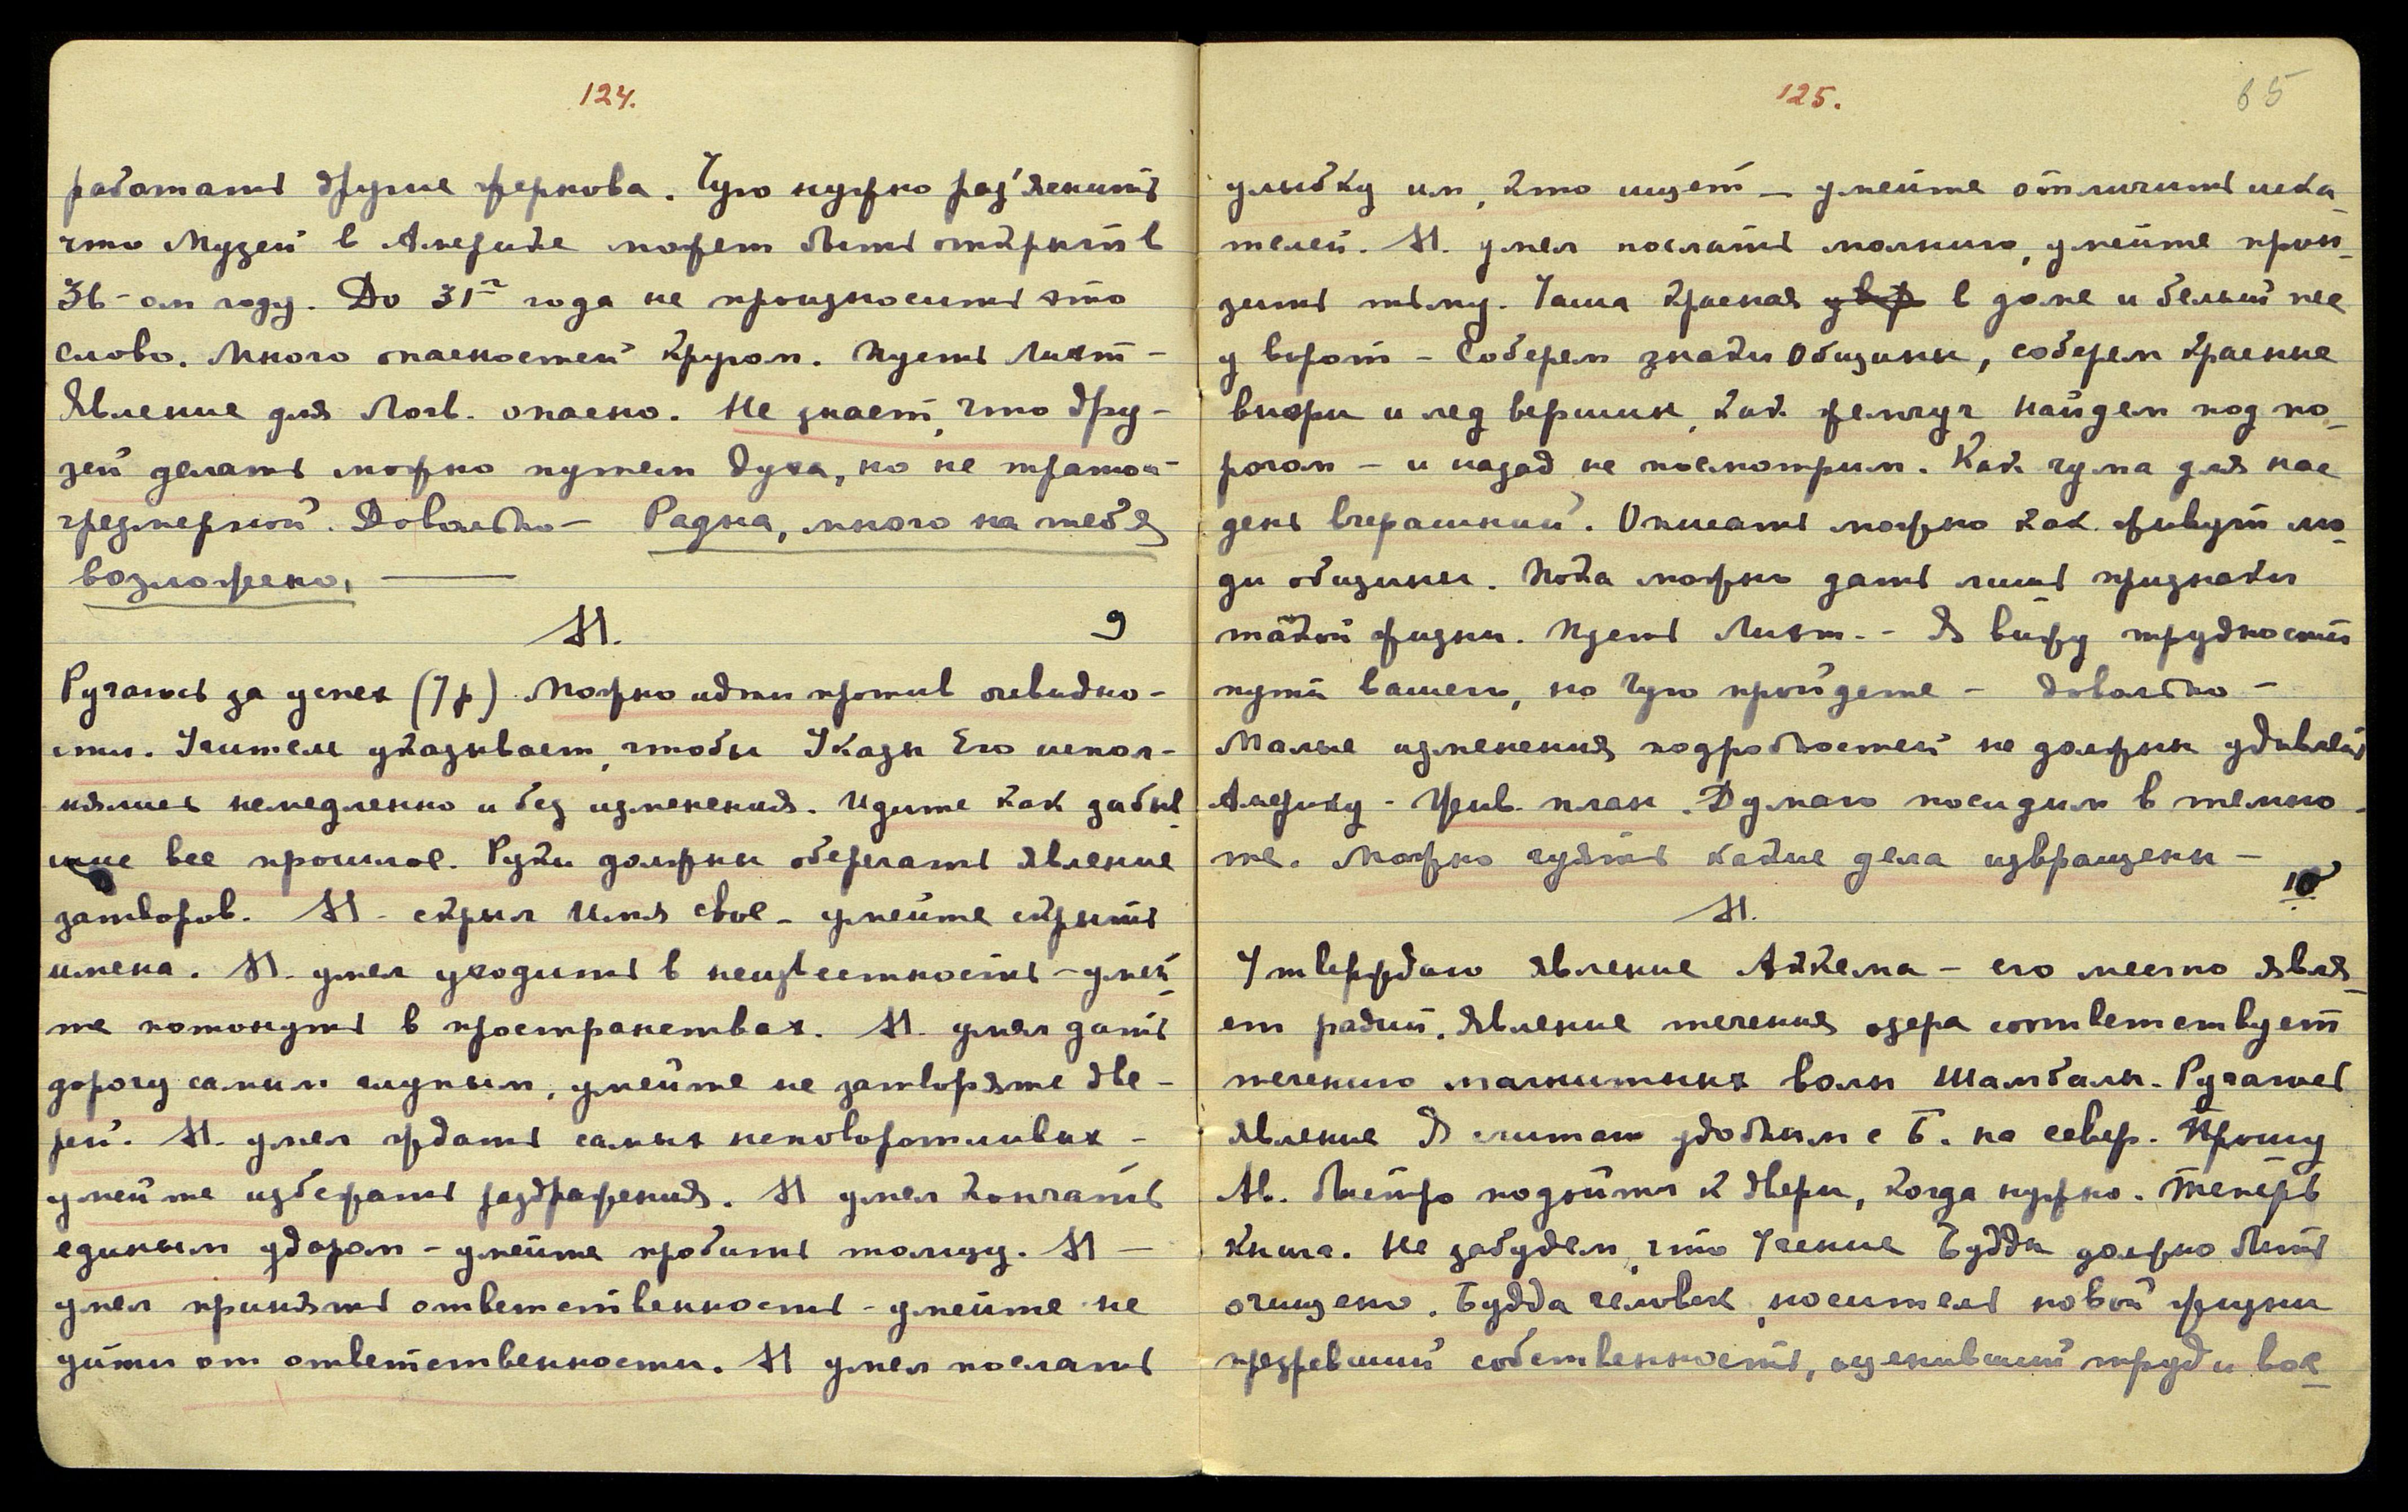 124.
работать другие жернова. Чую нужно раз'яснить
что Музей в Америке может быть открыт в
36-ом году. До 31г года не произносить это
слово. Много опасностей кругом. Пусть Лихт-
Явление для Логв. опасно. Не знает, что дру-
зей делать можно путем духа, но не тратой
чрезмерной. Довольно — Радна, много на тебя
возложено, —
М. 9
Ручаюсь за успех (7р) Можно идти против очевидно-
сти. Учитель указывает, чтобы Указы Его испол-
нялись немедленно и без изменения. Идите как забыв
шие все прошлое. Руки должны оберегать явление
затворов. М - скрыл Имя свое - умейте скрыть
имена. М. умел уходить в неизвестность - умей
те потонуть в пространствах. М. умел дать
дорогу самым глупым, умейте не затворяте две-
рей. М. умел ждать самых неповоротливых -
умейте избежать раздражения. М умел кончать
единым ударом - умейте пробить толщу. М —
умел принять ответственность - умейте не
уйти от ответственности. М умел послать
125. 65
улыбку им, кто ищет - умейте отличить иска-
телей. М. умел послать молнию, умейте прон-
зить тьму. Чаша красная в доме и белый пес
у ворот - Соберем знаки Общины, соберем красные
вихри и лед вершин, как жемчуг найдем под по-
рогом - и назад не посмотрим. Как чума для нас
день вчерашний. Описать можно как живут лю-
ди общины. Пока можно дать лишь признаки
такой жизни. Пусть Лихт. - Я вижу трудности
пути вашего, но чую пройдете - довольно -
Малые изменения подробностей не должны удивлять
Америку - Жив. план. Думаю посидим в темно-
те. Можно чуять какие дела извращены -
М. 10
Утверждаю явление Аккема - его место явля-
ет радий. Явление течения озера соответствует
течению магнитных волн Шамбалы. Ручаюсь
явление Я считаю удобным с Б. на север. Прошу
Ав. быстро подойти к двери, когда нужно. Теперь
Книга. Не забудем, что Учение Будды должно быть
очищено. Будда человек, носитель новой жизни
презревший собственность, оценивший труд и вос-